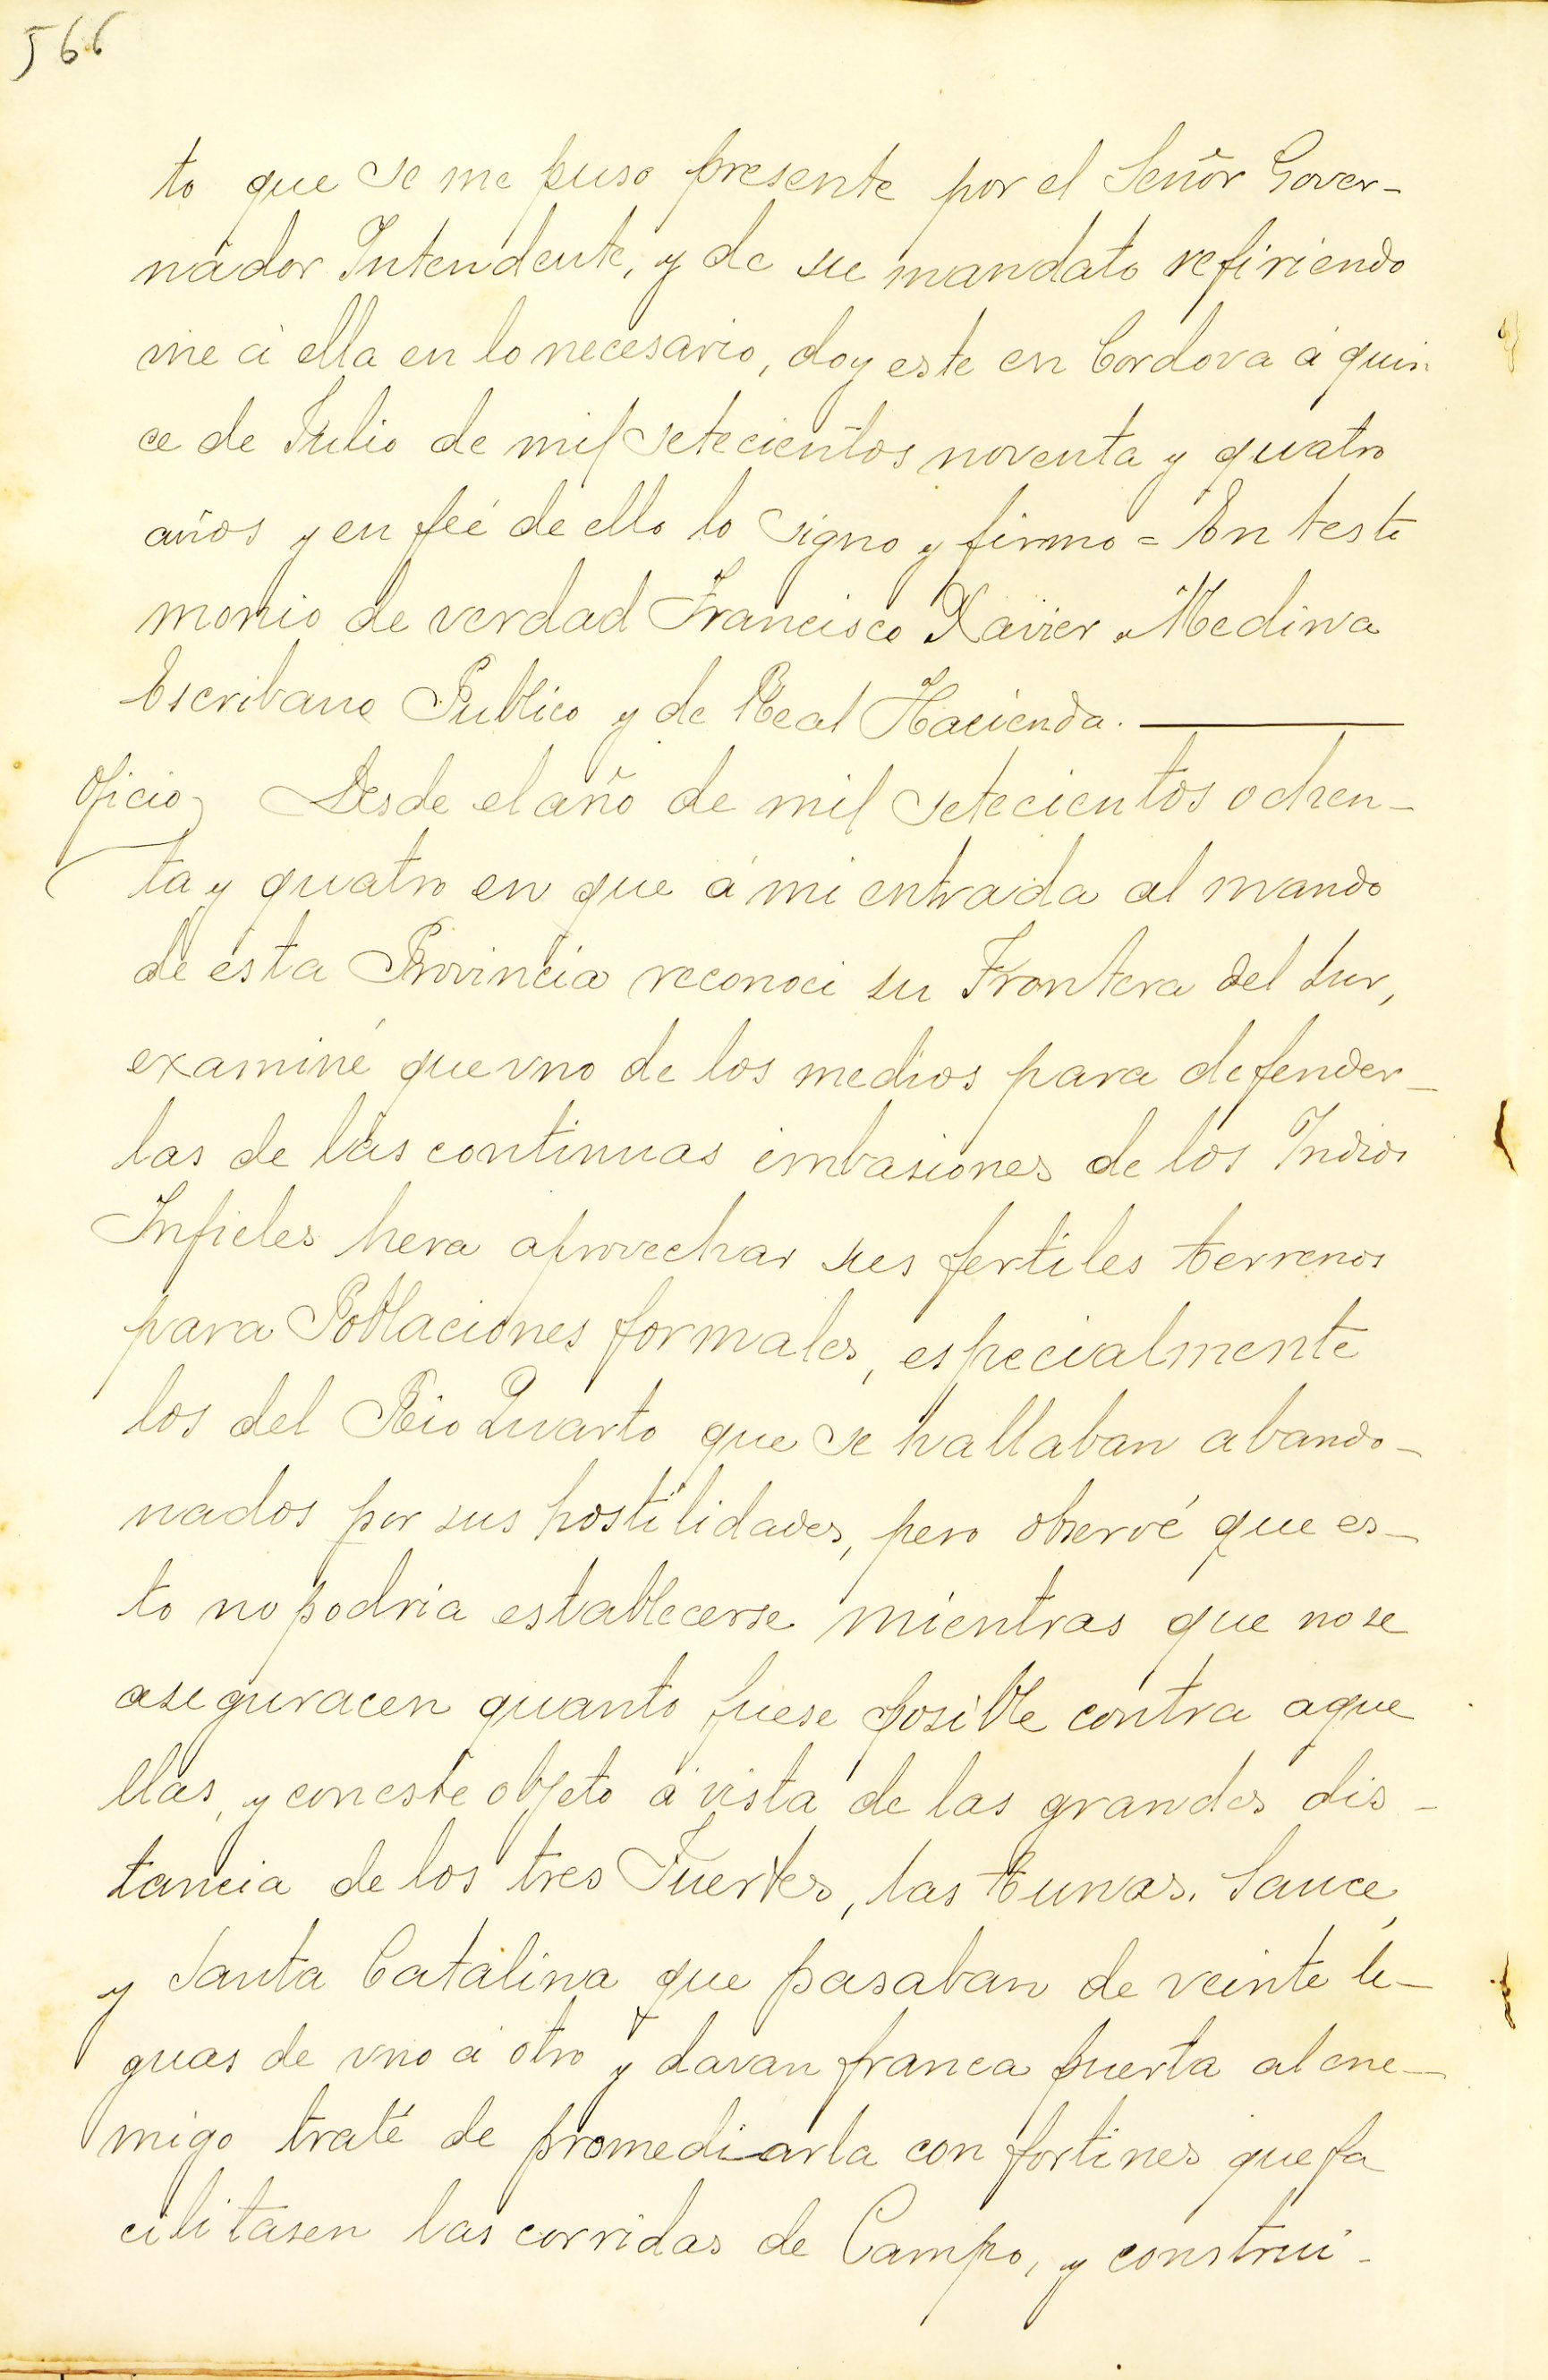 566
to que se me puso presente por el Señor Gover-
nador Intendente, y de su mandato refiriendo
me á ella en lo necesario, doy este en Cordova á quin
ce de Julio de mil setecientos noventa y quatro
años y en feé de ello lo signo y firmo = En testi
monio de verdad Francisco Xavier Medina
Escribano Publico y de Real Hacienda.
Oficio Desde el año de mil setecientos ochen-
ta y quatro en que á mi entrada al mando
de esta Provincia reconoci su Frontera del Sur,
examiné que vno de los medios para defender-
las de las continuas imbasiones de los Indios
Infieles hera aprovechar sus fertiles terrenos
para Poblaciones formales, especialmente
los del Rio Quarto que se hallaban abando-
nados por sus hostilidades, pero observé que es-
to no podria establecerse mientras que no se
aseguracen quanto fuese posible contra aque
llas, y con este objeto á vista de las grandes dis-
tancia de los tres Fuertes, las tunas. Sauce,
y Santa Catalina que pasaban de veinte le-
guas de vno á otro y davan franca puerta al ene-
migo traté de promediarla con fortines que fa
cilitasen las corridas de Campo, y construi-